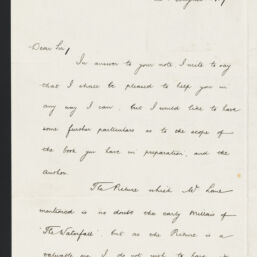 Dear Sir,
In answer to your note I write to say
that I shall be pleased to help you in
any way I can, but I would like to have
some further particulars as to the scope of
the book you have in preparation, and the
author.
The Picture which Mr Lane
mentioned is no doubt the early Millais of
"The Waterfall", but as the Picture is a
valuable one I do not wish to have it